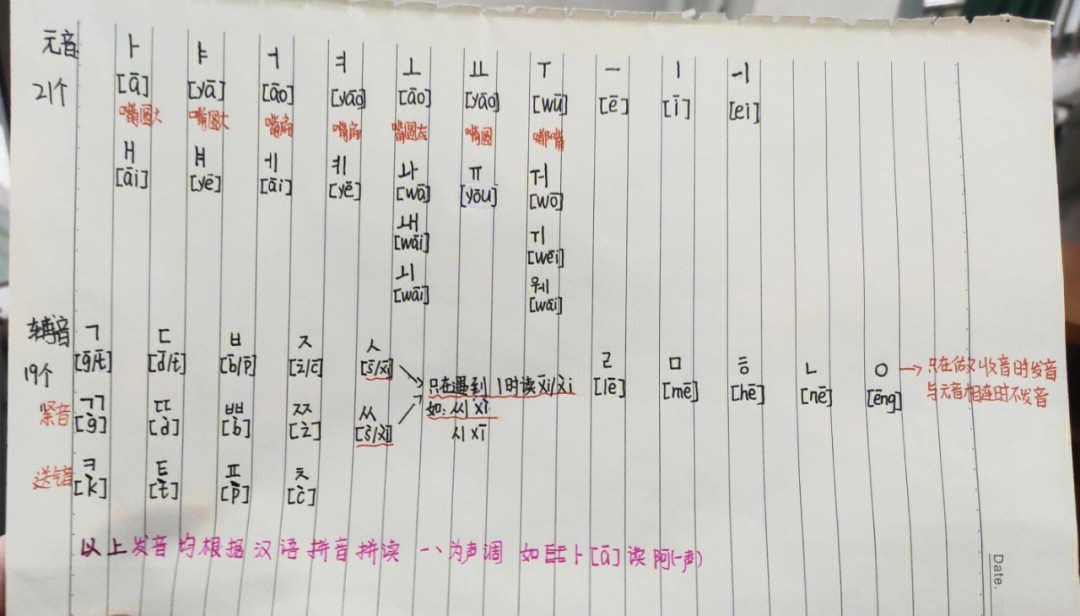 元音 ㅏ ㅑ ㅓ ㅕ ㅗ ㅛ ㅜ ㅡ ㅣ ㅢ
21个 [ā] [yā] [āo] [yāo] [āo] [yāo] [wū] [ē] [ī] [ei]
嘴圆大 嘴圆大 嘴扁 嘴扁 嘴圆 嘴圆 嘟嘴
ㅐ ㅒ ㅔ ㅖ ㅘ ㅠ ㅝ
[āi] [yē] [āi] [yē] [wā] [yōu] [wō]
ㅙ ㅟ
[wāi] [wēi]
ㅚ 웨
[wāi] [wāi]
辅音 ㄱ ㄷ ㅂ ㅈ ㅅ ㄹ ㅁ ㅎ ㄴ ㅇ → 只在做收音时发音
19个 [ḡ/k̄] [d̄/t̄] [b̄/p̄] [z̄/c̄] [s̄/xī] 只在遇到ㅣ时读xī/xì [lē] [mē] [hē] [nē] [ēng] 与元音相连时不发音
紧音 ㄲ ㄸ ㅃ ㅉ ㅆ 如:씨 xì
[g̀] [d̀] [b̀] [z̀] [s̀/xì] 시 xī
送气音 ㅋ ㅌ ㅍ ㅊ
[k̀] [t̀] [p̀] [c̀]
以上发音均根据汉语拼音拼读 一、为声调 如ㅏ[ā]读阿(一声)
Date.